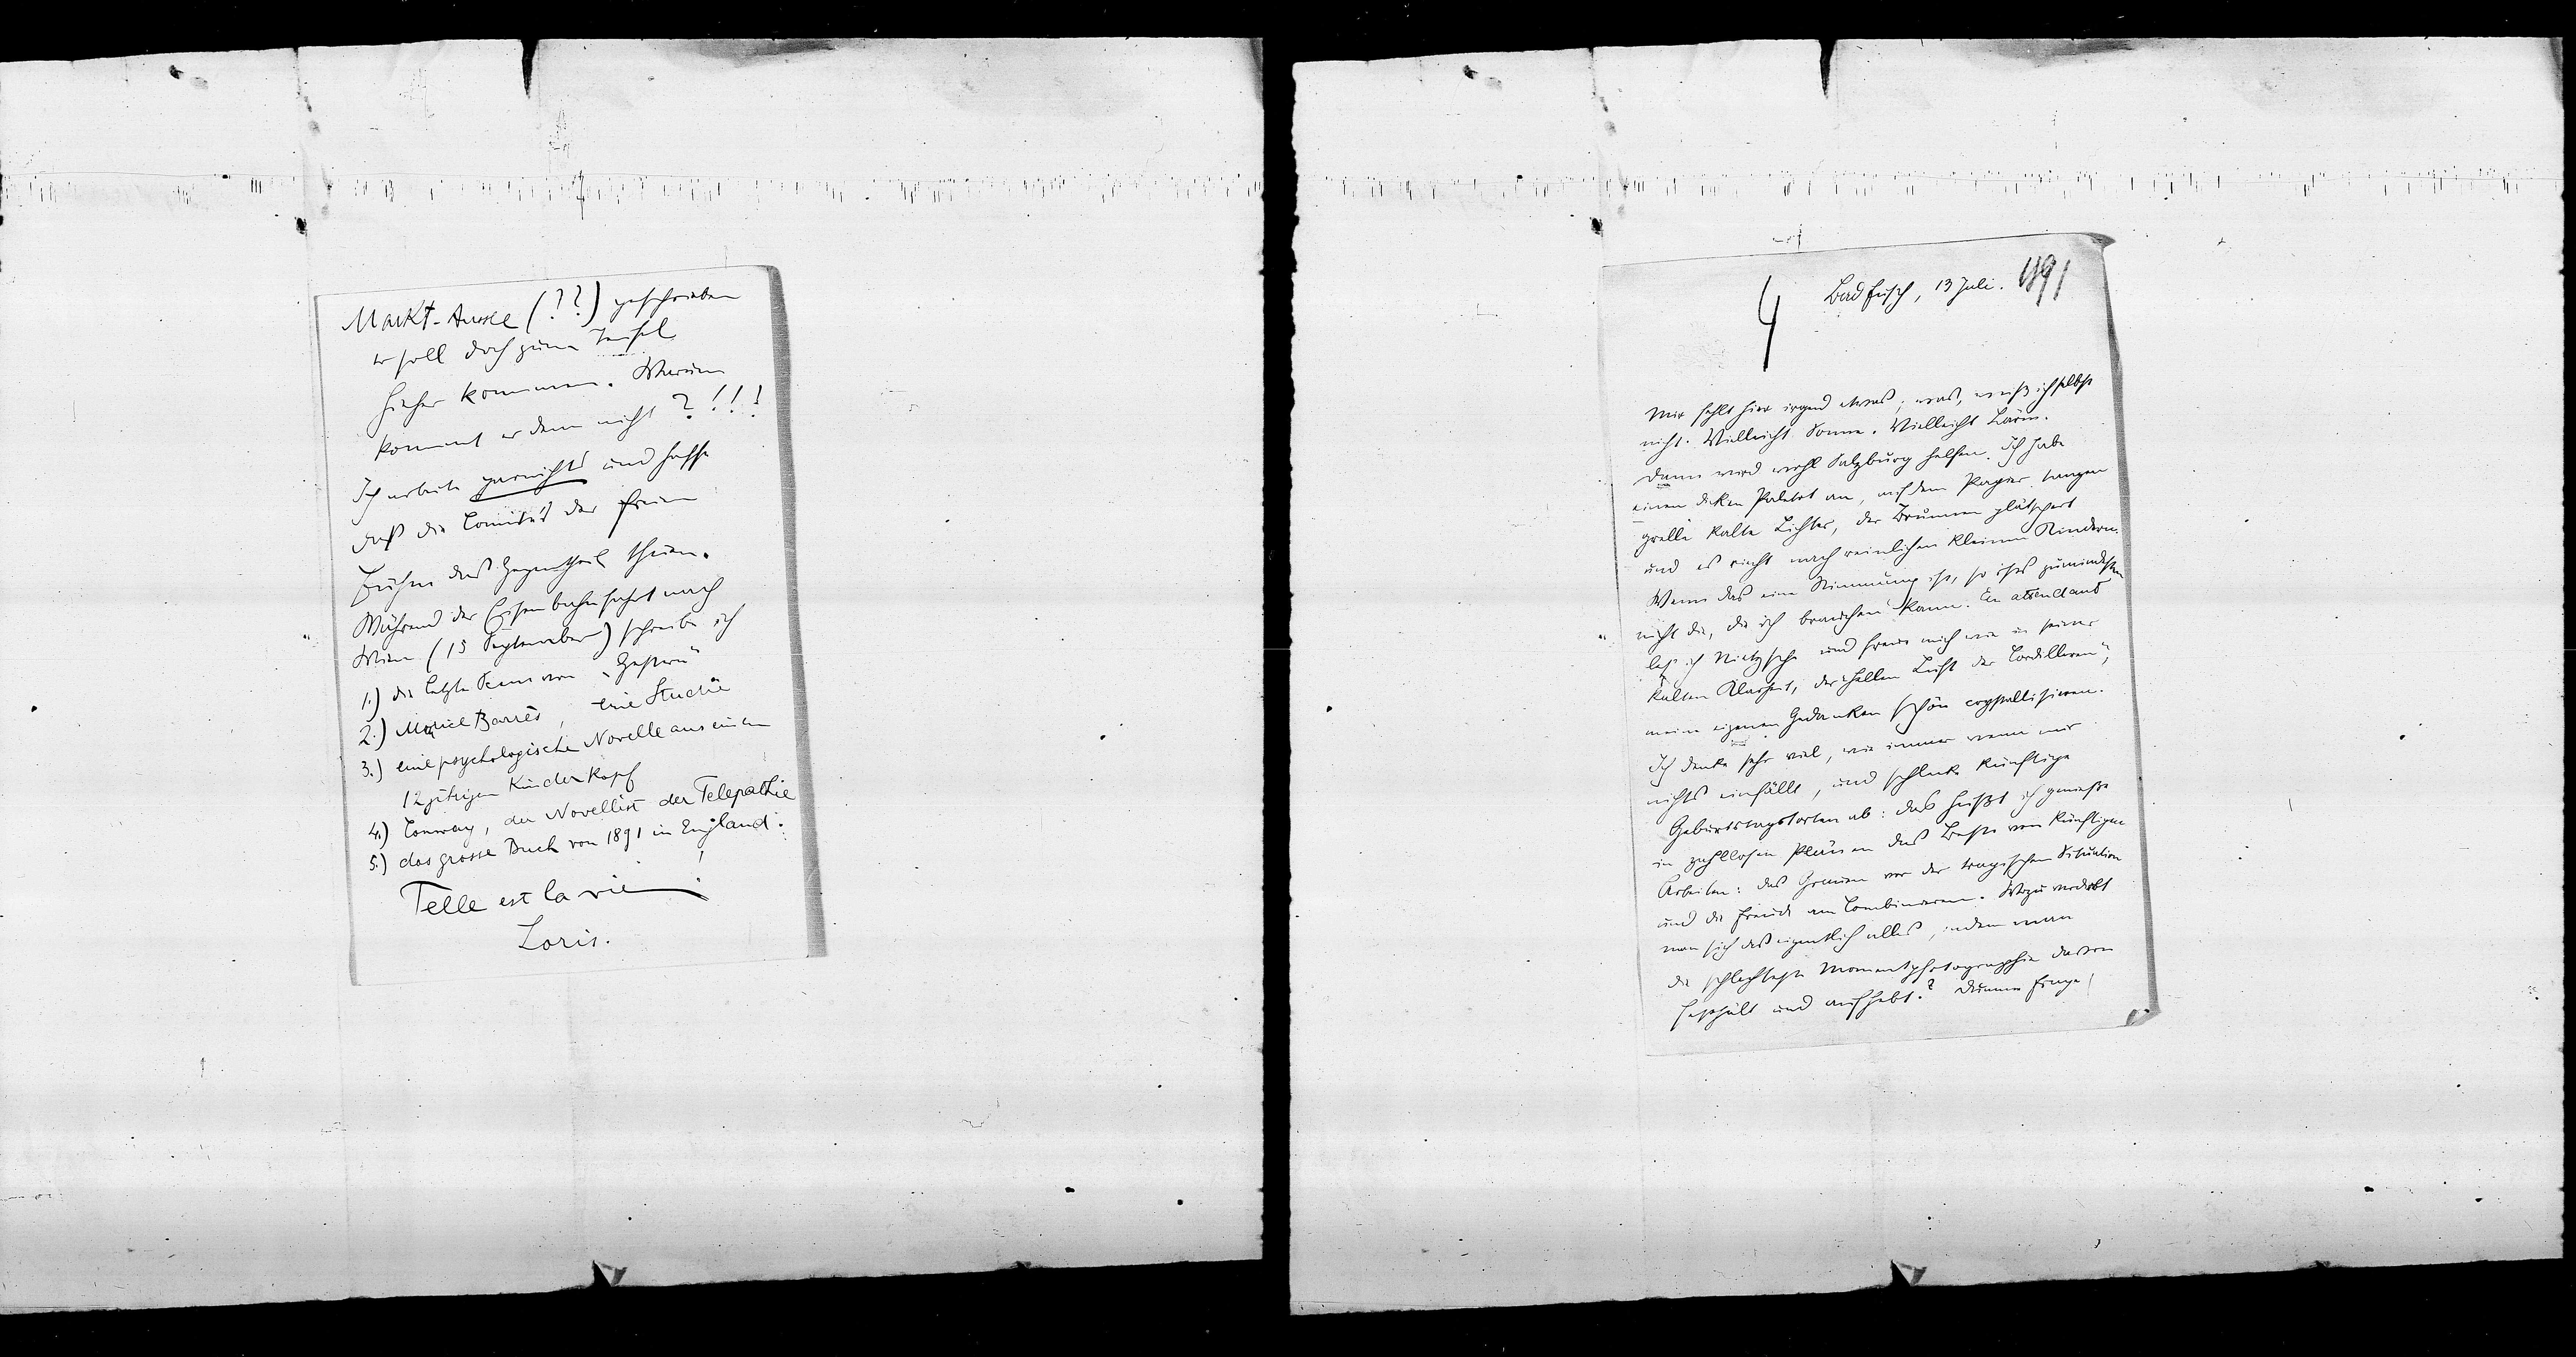 Markt-Aussee (??) geschrieben
er soll doch zum Teufel
hieher kommen. Warum
kommt er denn nicht?!!!
Ich arbeite garnichts und hoffe
daß die Comités der freien
Bühne das Gegentheil thuen.
Während der Eisenbahnfahrt nach
Wien (15 September) schreibe ich
1.) die letzte Scene von „Gestern"
2.) Maurice Barrès, eine Studie
3.) eine psychologische Novelle aus einem
12jährigen Kinderkopf
4.) Conway, der Novellist der Telepathie
5.) das grosse Buch von 1891 in England.
Telle est la vie!
Loris.
4 Bad Fusch, 13 Juli. 1891
Mir fehlt hier irgend etwas; was, weiß ich selbst
nicht. Vielleicht Sonne. Vielleicht Lärm.
Dann wird wohl Salzburg helfen. Ich habe
einen dicken Paletot an, auf dem Papier tanzen
grelle kalte Lichter, der Brunnen plätschert
und es riecht nach reinlichen kleinen Kindern.
Wenn das eine Stimmung ist, so ists zumindesten
nicht die, die ich brauchen kann. En attendant
les' ich Nietzsche und freue mich wie in seiner
kalten Klarheit, der „hellen Luft der Cordilleren",
meine eigenen Gedanken schön crystallisieren.
Ich denke sehr viel, wie immer wenn mir
nichts einfällt, und schlecke künftige
Geburtstagstorten ab: das heißt ich genieße
in zahllosen Plänen das Beste von künftigen
Arbeiten: das Grauen vor der tragischen Situation
und die Freude am Combinieren. Wozu verdirbt
man sich das eigentlich alles, indem man
die schlechteste Momentphotographie davon
festhält und aufhebt? Dumme Frage!